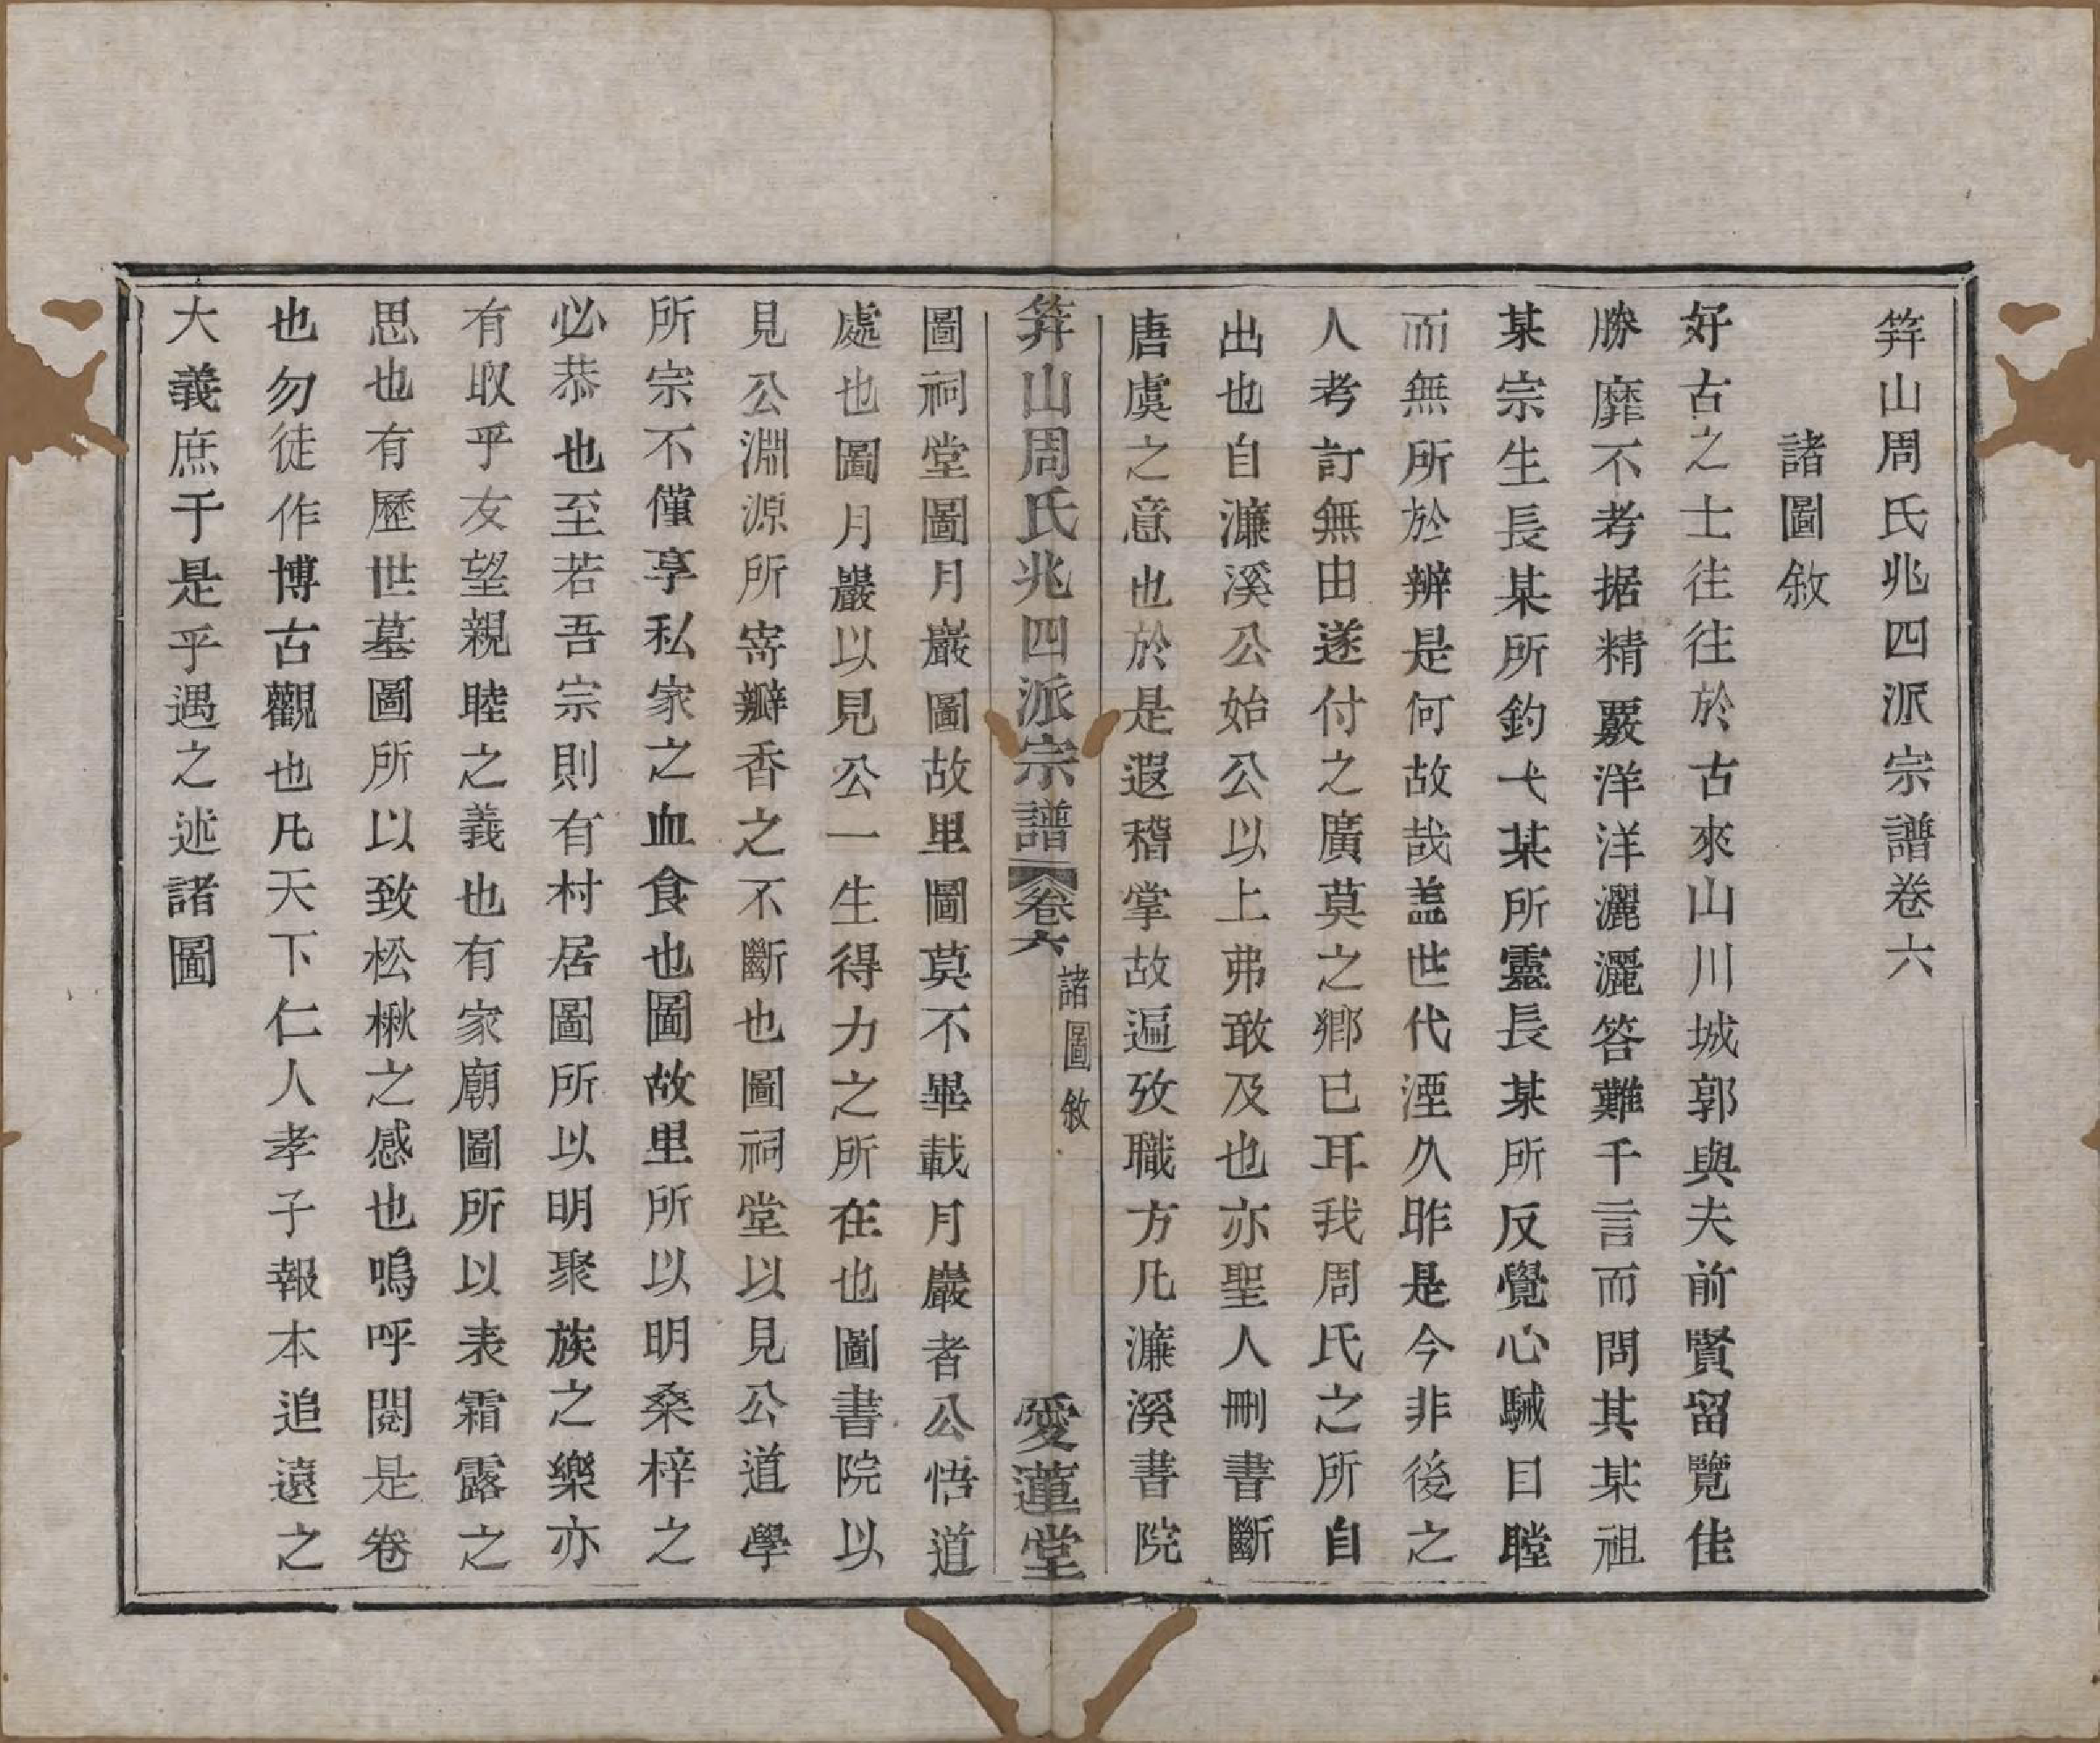 筓山周氏兆四派宗譜卷六
諸圖敘
好古之士徃往於古來山川城郭與夫前賢留覽佳
勝靡不考据精覈洋洋灑灑答難千言而問其某祖
某宗生長某所釣弋某所靈長某所反覺心駴目瞠
而無所於辨是何故哉盖世代湮久昨是今非後之
人考訂無由遂付之廣莫之鄉已耳我周氏之所自
出也自濂溪公始公以上弗敢及也亦聖人刪書斷
唐虞之意也於是遐稽掌故遍攷職方凡濂溪書院
筓山周氏兆四派宗譜 卷六 諸圖敘 愛蓮堂
圖祠堂圖月巖圖故里圖莫不畢載月巖者公悟道
處也圖月巖以見公一生得力之所在也圖書院以
見公淵源所寄瓣香之不斷也圖祠堂以見公道學
所宗不僅享私家之血食也圖故里所以明桑梓之
必恭也至若吾宗則有村居圖所以明聚族之樂亦
有取乎友望親睦之義也有家廟圖所以表霜露之
思也有歷世墓圖所以致松楸之感也嗚呼閱是卷
也勿徒作博古觀也凡天下仁人孝子報本追遠之
大義庶于是乎遇之述諸圖